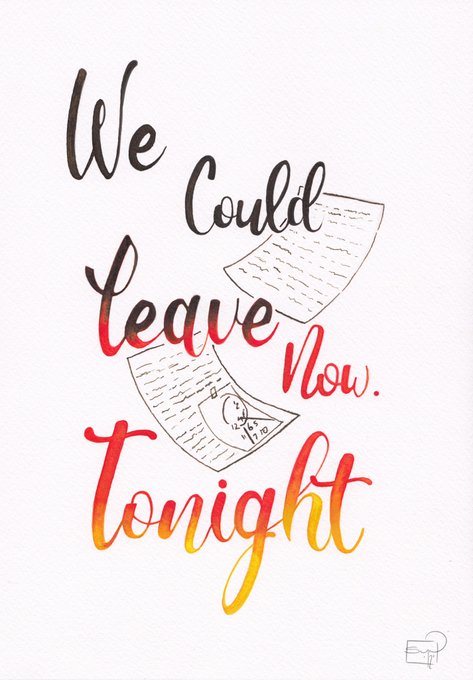 We
Could
Leave
Now.
Tonight